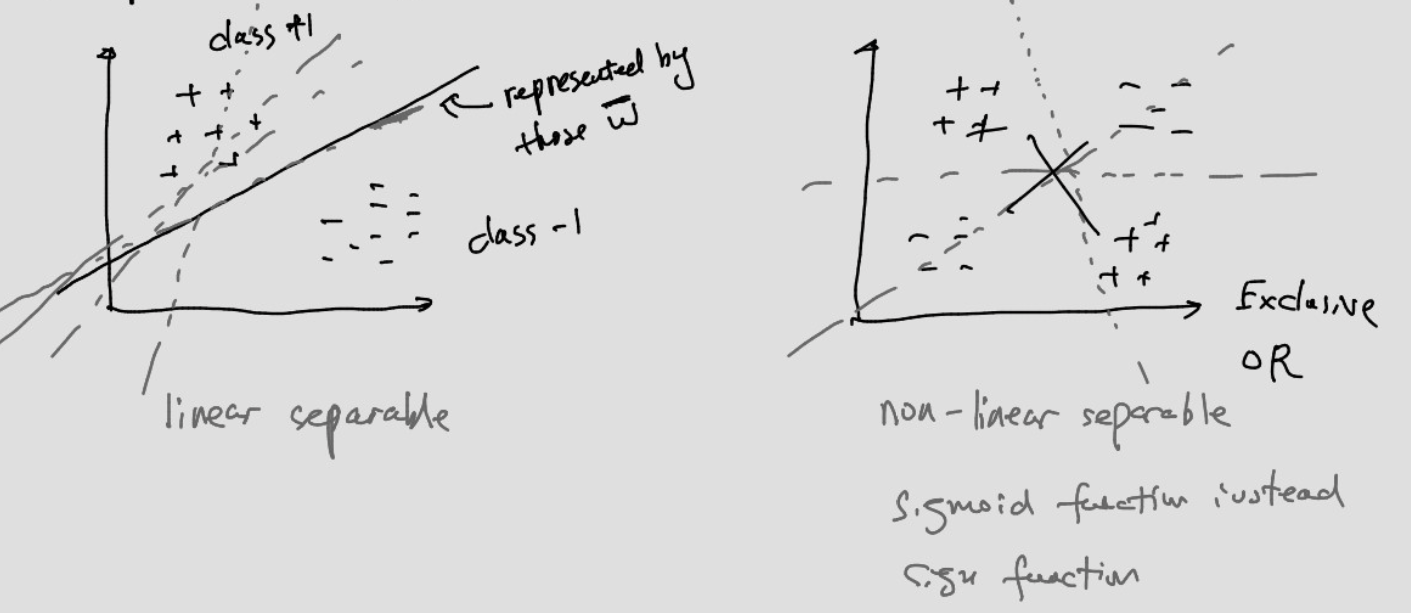 class +1
represented by
those w̄
class -1
linear separable
Exclusive
OR
non-linear separable
sigmoid function instead
sign function